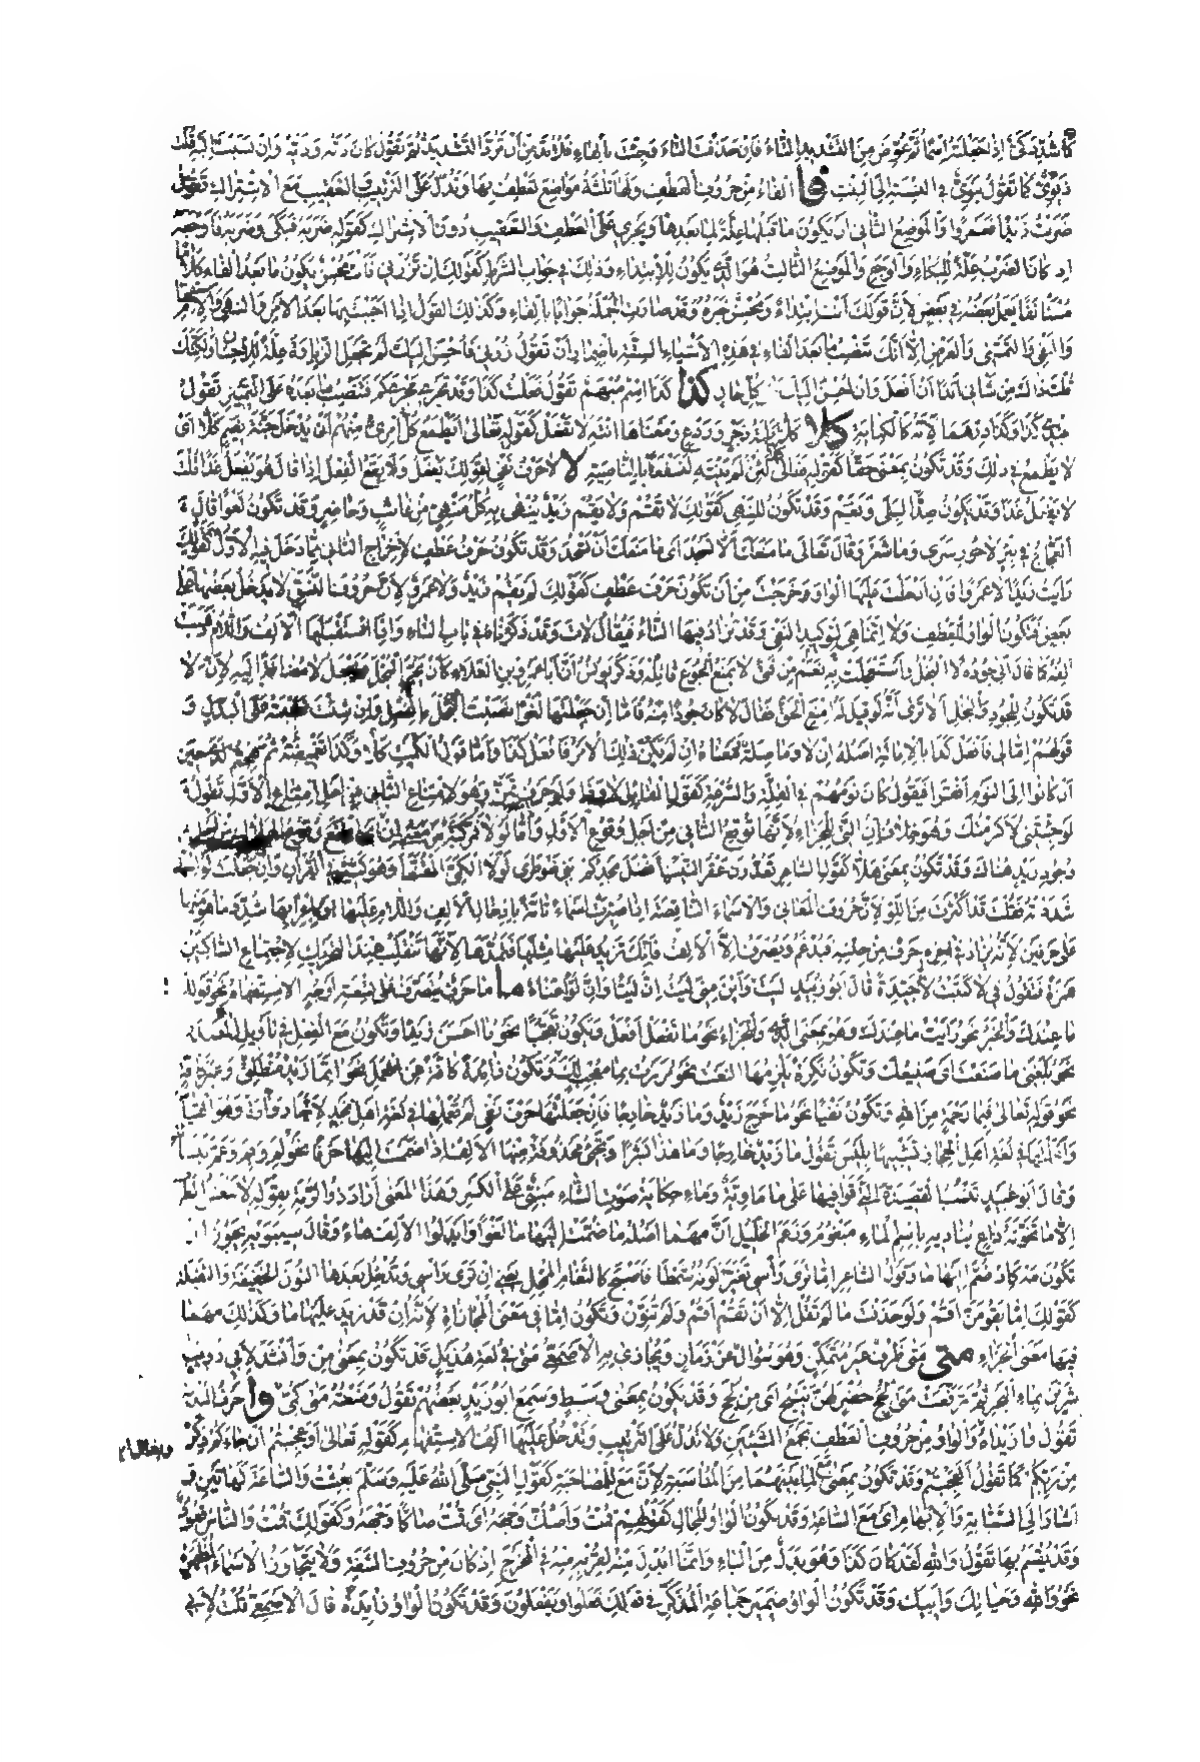 كما شدد كى اذا جعلته اسما ثم عوض من التشديد التاء فان حذفت التاء فجئت بالهاء فلا بد من ان ترد التشديد ثم تقول كان ذيه وذيه وان نسبت اليه قلت
ذيوى كما تقول بنوى فى النسبة الى البنت فا الفاء من حروف العطف ولها ثلثة مواضع تعطف بها وتدل على الترتيب والتعقيب مع الاشتراك تقول
ضربت زيدا فعمروا والموضع الثانى ان يكون ما قبلها علة لما بعدها ويجرى على العطف والتعقيب دون الاشتراك كقوله ضربه فبكى وضربه فاوجعه
اذ كان الضرب علة للبكاء والوجع والموضع الثالث هو الذى يكون للابتداء وذلك فى جواب الشرط كقولك ان تزرنى فانت محسن يكون ما بعد الفاء كلاما
مستأنفا يعمل بعضه فى بعض لان قولك انت ابتداء ومحسن خبره وقد صارت الجملة جوابا بالفاء وكذلك القول اذا اجبت بها بعد الامر والنهى والاستفهام
والنفى والتمنى والعرض الا انك تنصب ما بعد الفاء فى هذه الاشياء الستة باضمار ان تقول زرنى فاحسن اليك لم تجعل الزيارة علة للاحسان ولكنك
قلت ذاك من شانى ابدا ان افعل وان احسن اليك على كل حال كذا كذا اسم مبهم تقول فعلت كذا وقد تجرى مجرى كم فتنصب ما بعده على التمييز تقول
عندى كذا وكذا درهما لانه كالكناية كلا كلمة زجر وردع ومعناها انته لا تفعل كقوله تعالى ايطمع كل امرئ منهم ان يدخل جنة نعيم كلا اى
لا يطمع فى ذلك وقد تكون بمعنى حقا كقوله تعالى كلا لئن لم ينته لنسفعا بالناصية لا لا حرف نفى لقولك يفعل ولا يقع الفعل اذا قال هو يفعل غدا قلت
لا يفعل غدا وقد تكون ضدا لبلى ونعم وقد تكون للنهى كقولك لا تقم ولا يقم زيد ينهى به كل منهى من غائب وحاضر وقد تكون لغوا قال
العجاج فى بئر لا حور سرى وما شعر وقال تعالى ما منعك الا تسجد اى ما منعك ان تسجد وقد تكون حرف عطف لاخراج الثانى مما دخل فيه الاول كقولك
رايت زيدا لا عمروا فان ادخلت عليها الواو خرجت من ان تكون حرف عطف كقولك لم يقم زيد ولا عمرو لان حروف النسق لا يدخل بعضها على
بعض فتكون الواو للعطف ولا انما هى لتوكيد النفى وقد تزاد فيها التاء فيقال لات وقد ذكرناه فى باب التاء واذا استقبلها الالف واللام ذهبت
الفه كما قال ابى جوده لا البخل واستعجلت به نعم من فتى لا يمنع الجوع قاتله وذكر يونس ان ابا عمرو بن العلاء كان يجر البخل ويجعل لا مضافة اليه لان لا
قد تكون للجود وللبخل الا ترى انه لو قيل له امنع الحق فقال لا كان جودا منه فاما ان جعلتها لغوا نصبت البخل بالفعل وان شئت نصبته على البدل و
قولهم امالى فافعل كذا بالامالة اصله ان لا وما صلة فمعناه ان لم يكن ذلك الامر فافعل كذا واما قول الكميت كلا وكذا تغميضة ثم هجتم لدى حين
ان كانوا الى النوم افقرا فيقول كان نومهم فى القلة والسرعة كقول القائل لا وذا ولو حرف تمن وهو لامتناع الثانى من اجل امتناع الاول تقول
لو جئتنى لاكرمتك وهو خلاف ان التى للجزاء لانها توقع الثانى من اجل وقوع الاول واما لولا فمركبة من معنى ان ولو
وجود زيد هناك وقد تكون بمعنى هلا كقول الشاعر تعدون عقر النيب افضل مجدكم بنى ضوطرى لولا الكمى المقنعا وهو كثير فى القرآن وان جعلت لو اسما
شددته فقلت قد اكثرت من اللو لان حروف المعانى والاسماء الناقصة اذا صيرت اسماء تامة بادخال الالف واللام عليها او باعرابها شدد ما هو منها
على حرفين لانه يزاد فى اخره حرف من جنسه فيدغم ويصرف الا الالف فانك تزيد عليها مثلها فتمدها لانها تنقلب عند التحريك لاجتماع الساكنين
همزة فتقول فى لا كتبت لاء جيدة قال ابو زبيد ليت شعرى واين منى ليت ان ليتا وان لوا عناء ما ما حرف يتصرف على تسعة اوجه الاستفهام نحو قولك
ما عندك والخبر نحو رايت ما عندك وهو بمعنى الذى والجزاء نحو ما تفعل افعل وتكون تعجبا نحو ما احسن زيدا وتكون مع الفعل فى تاويل المصدر
نحو بلغنى ما صنعت اى صنيعك وتكون نكرة يلزمها النعت نحو مررت بما معجب لك وتكون زائدة كافة عن العمل نحو انما زيد منطلق وغير كافة
نحو قوله تعالى فبما رحمة من الله وتكون نفيا نحو ما خرج زيد وما زيد خارجا فان جعلتها حرف نفى لم تعملها فى لغة اهل نجد لانها دوارة وهو القياس
واعملتها فى لغة اهل الحجاز تشبيها بليس تقول ما زيد خارجا وما هذا بشرا وتجئ محذوفة منها الالف اذا ضممت اليها حرفا نحو لم وبم وعم يتسالون
وقال ابو عبيد تنسب القصيدة التى قوافيها على ما ماوية وماء حكاية صوت الشاء مبنى على الكسر وهذا المعنى اراد ذو الرمة بقوله لا ينعش الطرف
الا ما تخونه داع يناديه باسم الماء مبغوم وزعم الخليل ان مهما اصلها ما ضمت اليها ما لغوا وابدلوا الالف هاء وقال سيبويه يجوز ان
تكون مه كاذ ضم اليها ما وقول الشاعر اما ترى راسى تغير لونه شمطا فاصبح كالثغام المخلس يعنى ان ترى راسى وتدخل بعدها النون الخفيفة والثقيلة
كقولك اما يقومن اقم ولو حذفت ما لم تقل الا ان تقم اقم ولم تنون وتكون اما فى معنى المجازاة لانه ان قد زيد عليها ما وكذلك مهما
فيها معنى الجزاء متى متى ظرف غير متمكن وهو سؤال عن زمان ويجازى به الاصمعى متى فى لغة هذيل قد تكون بمعنى من وانشد لابى ذويب
شربن بماء البحر ثم ترفعت متى لجج خضر لهن نئيج اى من لجج وقد تكون بمعنى وسط وسمع ابو زيد بعضهم تقول وضعته متى كمى وا وا حرف الندبة
تقول وا زيداه والواو من حروف العطف تجمع الشيئين ولا تدل على الترتيب وتدخل عليها الف الاستفهام كقوله تعالى اوعجبتم ان جاءكم ذكر
من ربكم كما تقول افعجبتم وقد تكون بمعنى مع لما بينهما من المناسبة لان مع للمصاحبة كقول النبى صلى الله عليه وسلم بعثت والساعة كهاتين و
اشار الى السبابة والابهام اى مع الساعة وقد تكون الواو للحال كقولهم قمت واصك وجهه اى قمت صاكا وجهه وكقولك قمت والناس قعود
وقد يقسم بها تقول والله لقد كان كذا وهو بدل من الباء وانما ابدل منه لقربه منه فى المخرج اذ كان من حروف الشفة ولا يتجاوز الاسماء المظهرة
نحو والله وحياتك وابيك وقد تكون الواو ضمير جماعة المذكر فى قولك فعلوا ويفعلون وقد تكون الواو زايدة قال الاصمعى قلت لابى